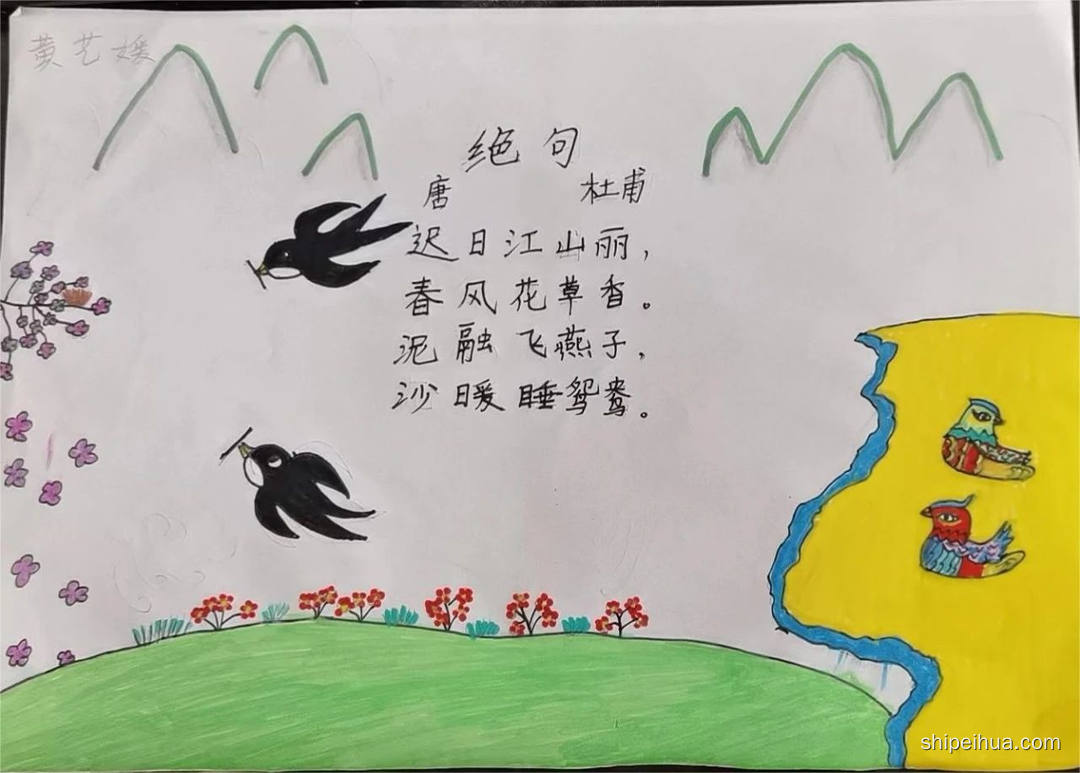 黄艺媛
绝句
唐 杜甫
迟日江山丽，
春风花草香。
泥融飞燕子，
沙暖睡鸳鸯。
shipeihua.com